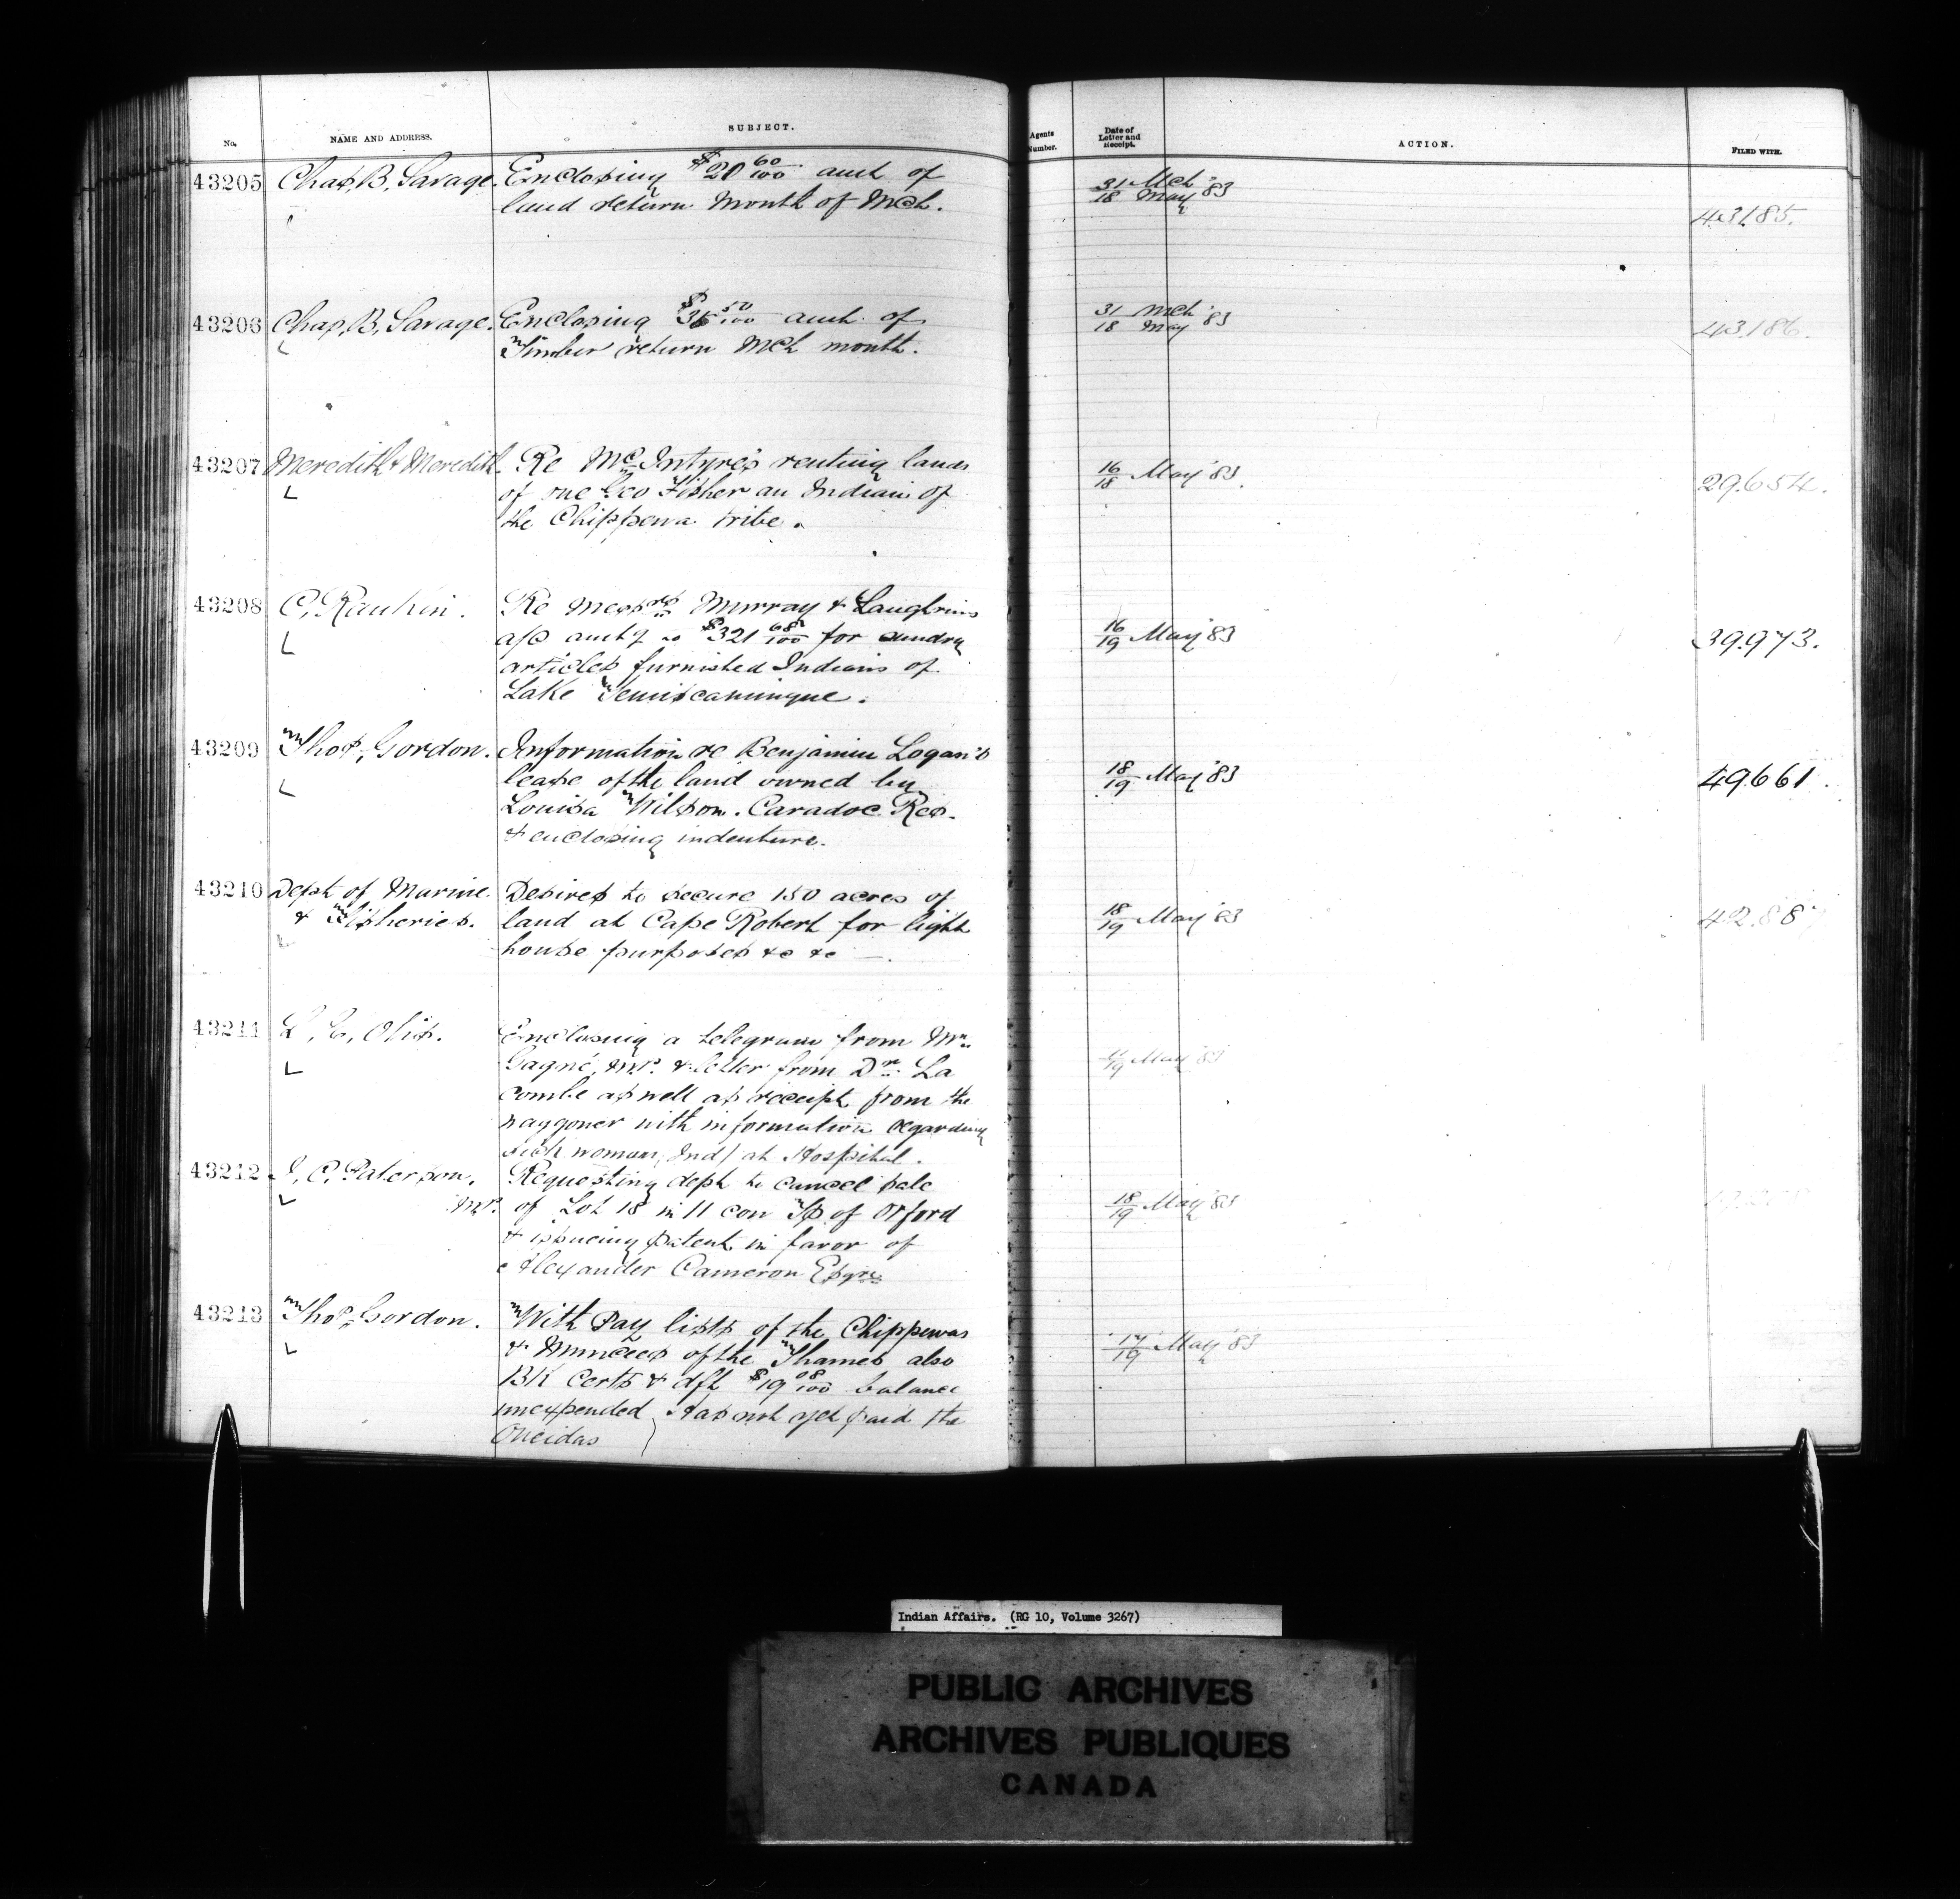 No.
NAME AND ADDRESS.
SUBJECT.
Agents Number.
Date of Letter and Receipt.
ACTION.
FILED WITH.
43205 Chas. B. Savage. Enclosing $20 60/100 amt of
land return Month of Mch.
31 Mch / 18 May '83
43185.
43206 Chas. B. Savage. Enclosing 50/100 amt of
Timber return Mch month.
31 Mch / 18 May '83
43186.
43207 Meredith & Meredith. Re McIntyre's renting lands
of one Geo Fisher an Indian of
the Chippewa tribe.
16/18 May '83.
29.654.
43208 C. Rankin. Re Messrs Murray & Laughrins
a/c amt'g to $321 68/100 for sundry
articles furnished Indians of
Lake Temiscamingue.
16/19 May '83
39.973.
43209 Thos. Gordon. Information re Benjamin Logan's
lease of the land owned by
Louisa Wilson. Caradoc Res.
& enclosing indenture.
18/19 May '83
49661.
43210 Dept of Marine & Fisheries. Desires to secure 150 acres of
land at Cape Robert for light
house purposes &c &c —.
18/19 May '83
42.88
43211 Enclosing a telegram from Mr.
Gagné, M.P. & letter from Dr. La
combe as well as receipt from the
waggoner with information regarding
sick woman, Ind/ at Hospital.
May '83
43212 Paterson, M.P. Requesting dept to cancel sale
of Lot 18 in 11 con Tp of Orford
& issueing patent in favor of
Alexander Cameron Esqre
18/19 May '83
43213 Thos. Gordon. With Pay lists of the Chippewas
& Muncees of the Thames also
BK Certs & dft $19 08/100 balance
unexpended, Has not yet paid the
Oneidas
17/19 May '83
Indian Affairs. (RG 10, Volume 3267)
PUBLIC ARCHIVES
ARCHIVES PUBLIQUES
CANADA